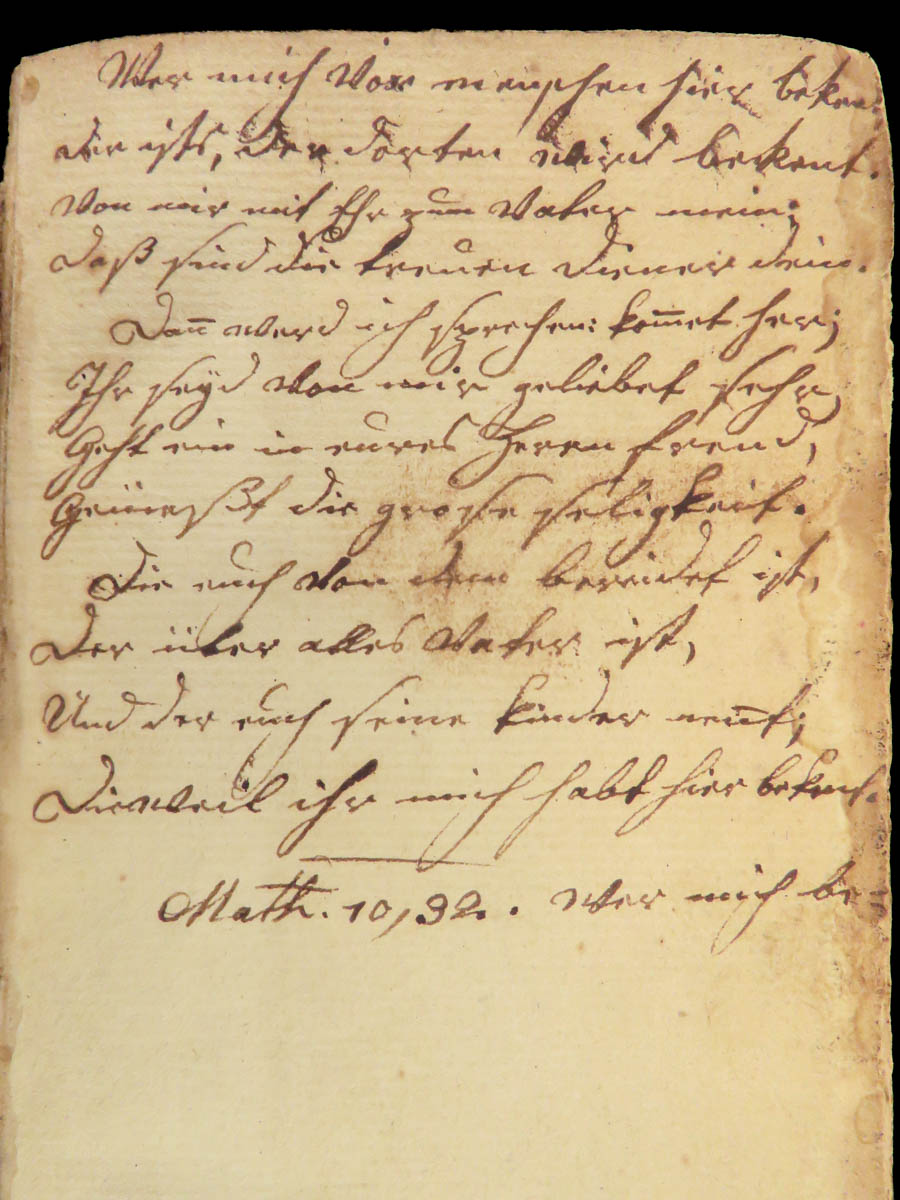 Wer mich Vor menschen hier beken-
der ists, der dorten wird bekent.
Von mir mit Ehr zum Vater mein;
Daß sind die treuen Diener dein.
Dan̄ werd ich sprechen: kom̄et her;
Ihr seyd Von mir geliebet sehr,
Geht ein in eures Herren freud,
Genießt die grose seligkeit.
Die euch Von dem bereidet ist,
Der über alles Vater ist,
Und der euch seine kinder nen̄t;
Dieweil ihr mich habt hier bekent.
Math. 10, 32. Wer mich be-